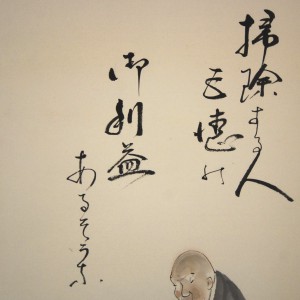 掃除する人
御利益
あるそうな